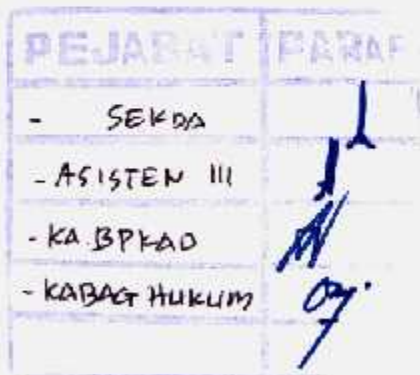 PEJABAT PARAF
- SEKDA
- ASISTEN III
- KA BPKAD
- KABAG HUKUM